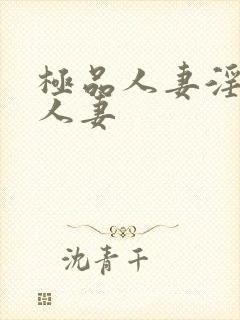 極品人妻淫
人妻
沈青干